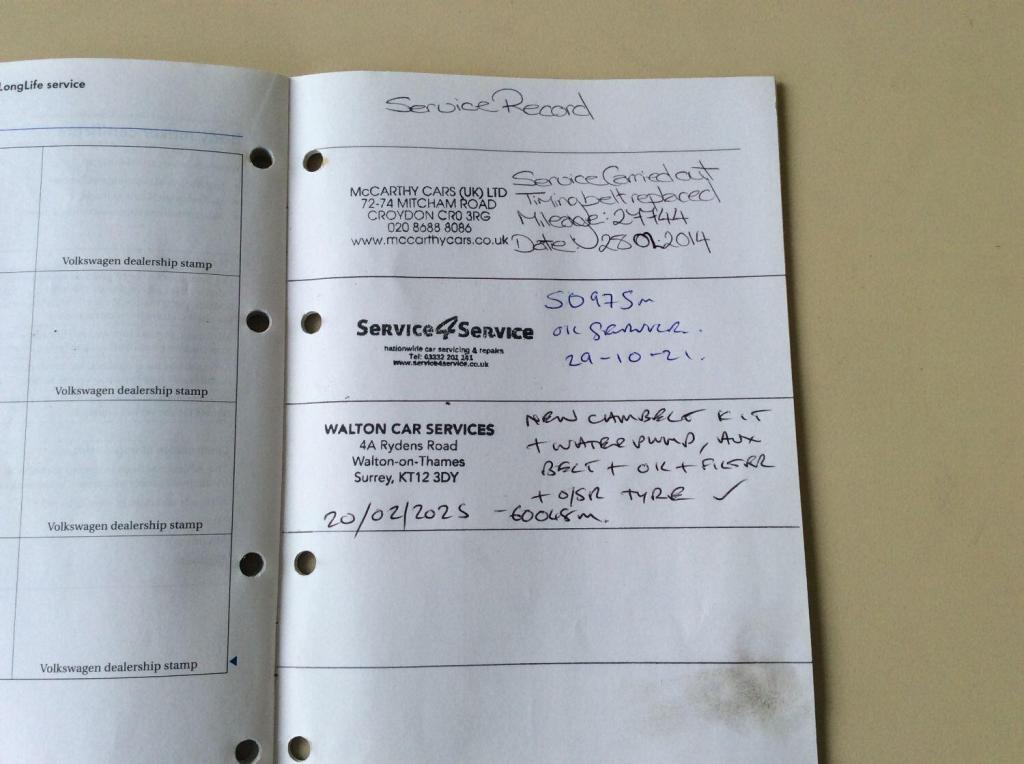 LongLife service
Volkswagen dealership stamp
Volkswagen dealership stamp
Volkswagen dealership stamp
Volkswagen dealership stamp
Service Record
McCARTHY CARS (UK) LTD
72-74 MITCHAM ROAD
CROYDON CR0 3RG
020 8688 8086
www.mccarthycars.co.uk
Service Carried out
Timing belt replaced
Mileage: 27744
Date 28 01 2014
Service4Service
nationwide car servicing & repairs
Tel: 03332 201 241
www.service4service.co.uk
50975m
OIL SERVICE.
29-10-21.
WALTON CAR SERVICES
4A Rydens Road
Walton-on-Thames
Surrey, KT12 3DY
20/02/2025
NEW CAMBELT KIT
+ WATER PUMP, AUX
BELT + OIL + FILTER
+ O/SR TYRE ✓
- 60048m.